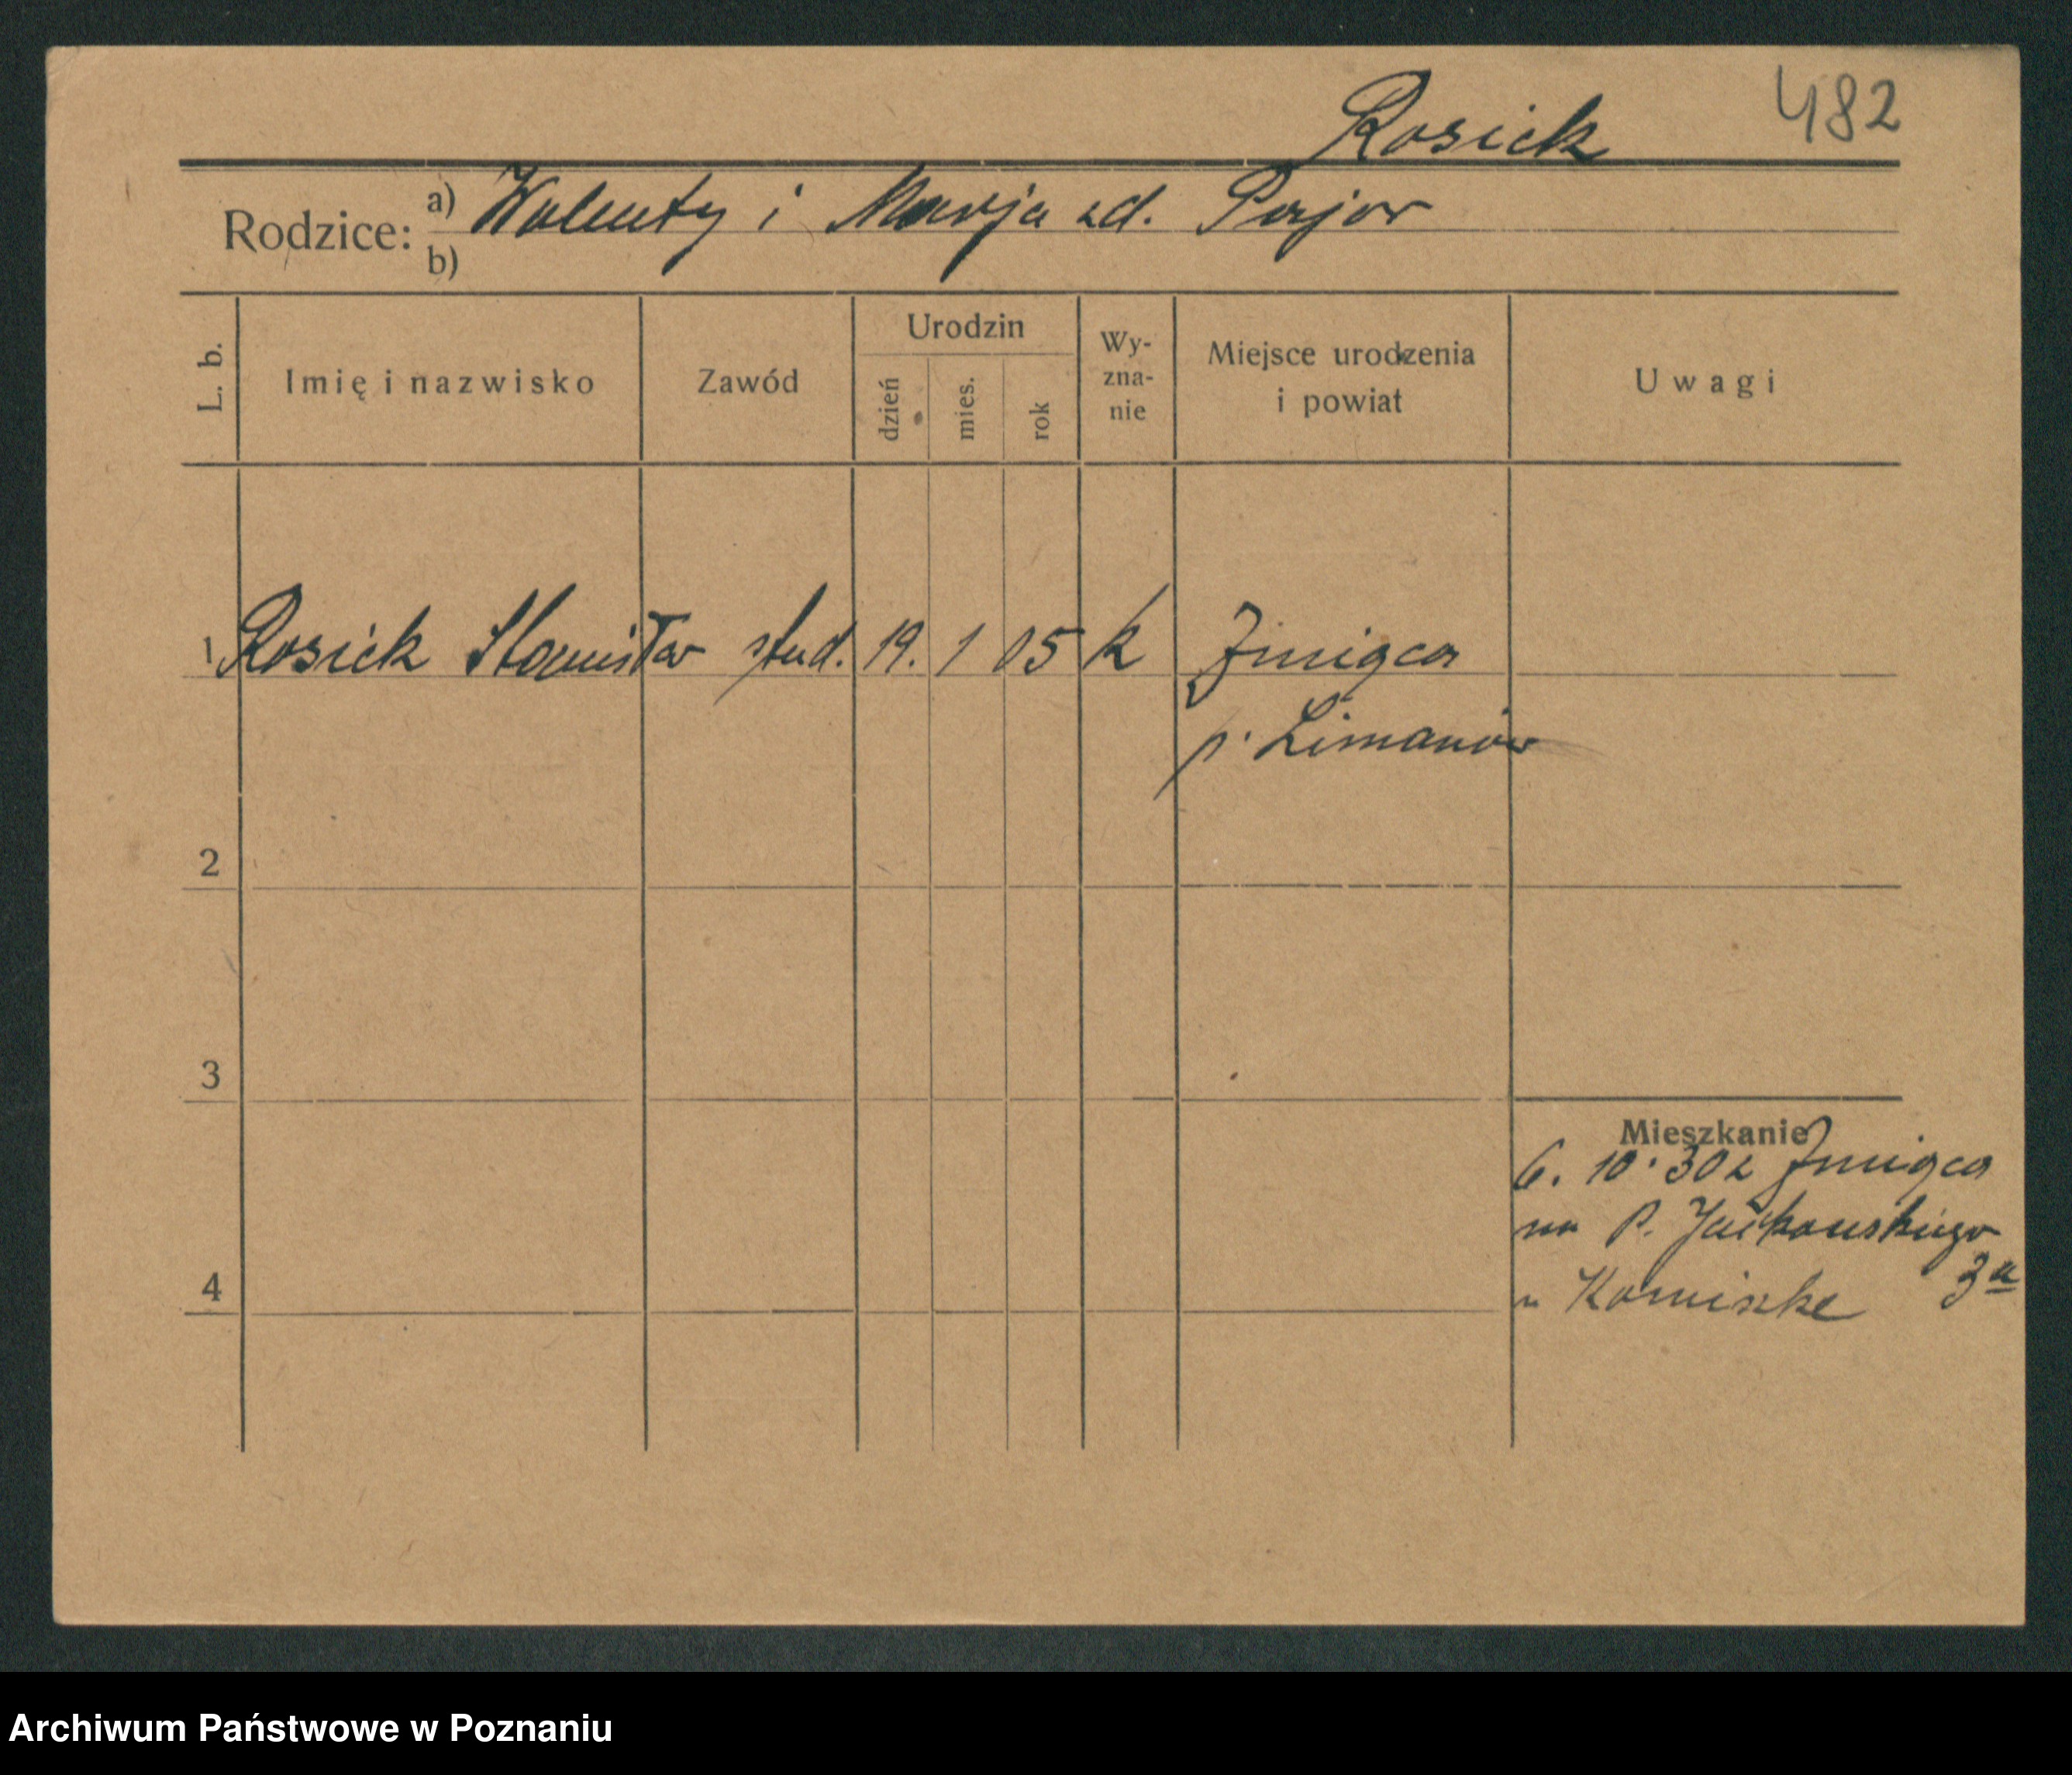 Rosiek 482
Rodzice: a) Walenty i Marja zd. Pajor
b)
L. b. Imię i nazwisko Zawód Urodzin dzień mies. rok Wy-zna-nie Miejsce urodzenia i powiat Uwagi
1 Rosiek Stanisław stud. 19. 1 05 k Żmiąca
p. Limanów
2
3
Mieszkanie
6. 10. 30 z Żmiąca
na P. Jackowskiego
4 3a
u
Archiwum Państwowe w Poznaniu